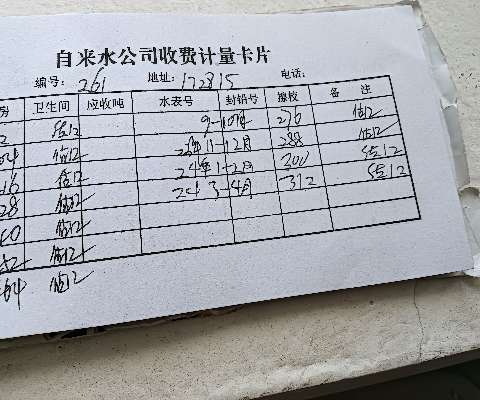 自来水公司收费计量卡片
编号: 261 地址: 172815 电话:
卫生间 应收吨 水表号 封铅号 擦校 备 注
估12 9-10月 276 估12
估12 11-12月 288 估12
估12 24年1-2月 300 估12
28 估12 24 3-4月 312 估12
估12
估12
估12